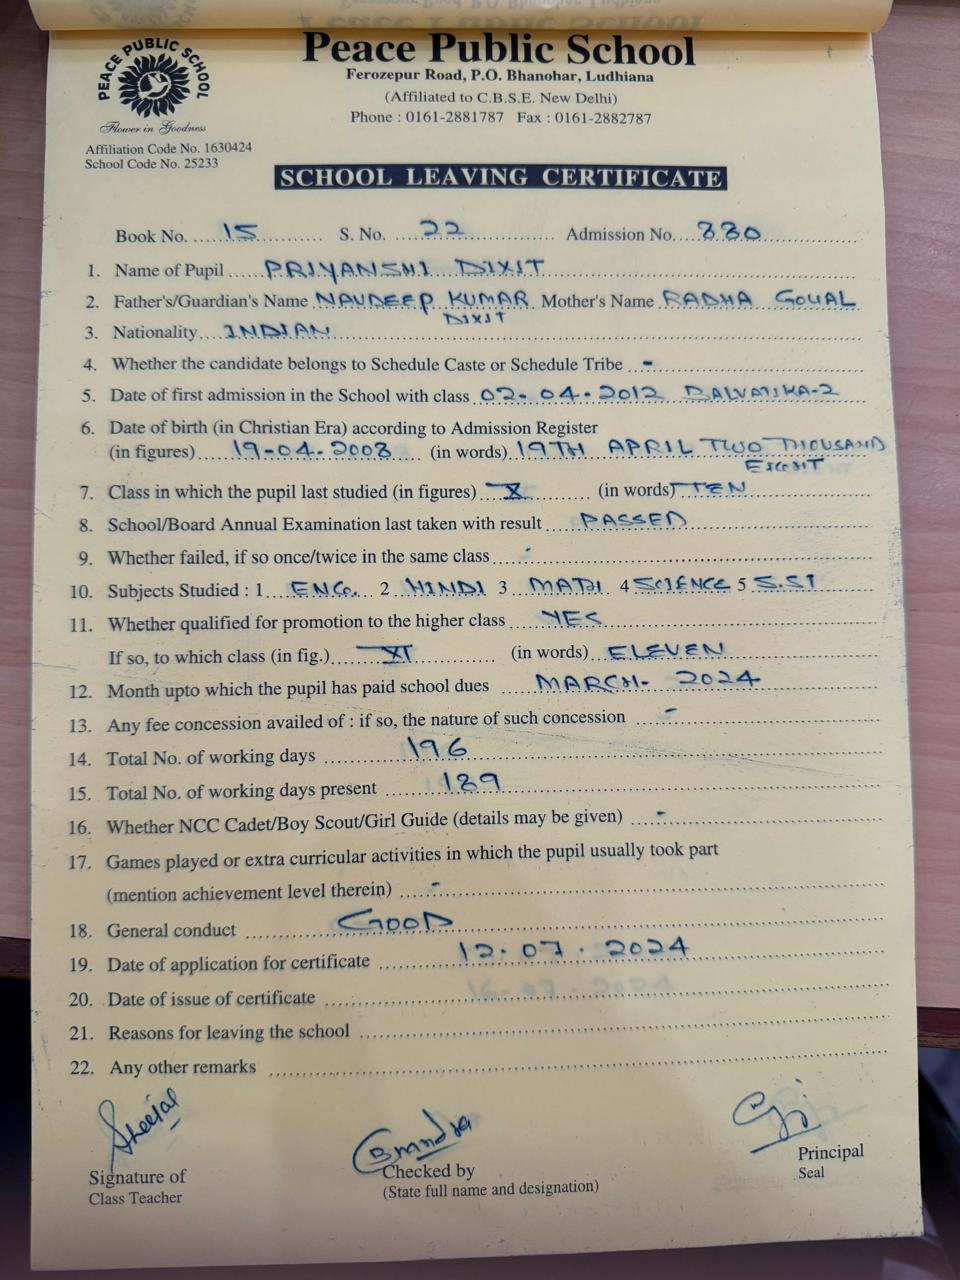 PEACE PUBLIC SCHOOL
Flower in Goodness
Affiliation Code No. 1630424
School Code No. 25233
Peace Public School
Ferozepur Road, P.O. Bhanohar, Ludhiana
(Affiliated to C.B.S.E. New Delhi)
Phone : 0161-2881787 Fax : 0161-2882787
SCHOOL LEAVING CERTIFICATE
Book No. 15 S. No. 22 Admission No. 880
1. Name of Pupil PRIYANSHI DIXIT
2. Father's/Guardian's Name NAVDEEP KUMAR DIXIT Mother's Name RADHA GOYAL
3. Nationality INDIAN
4. Whether the candidate belongs to Schedule Caste or Schedule Tribe -
5. Date of first admission in the School with class 02-04-2012 BALVATIKA-2
6. Date of birth (in Christian Era) according to Admission Register
(in figures) 19-04-2008 (in words) 19TH APRIL TWO THOUSAND
7. Class in which the pupil last studied (in figures) X (in words) TEN
8. School/Board Annual Examination last taken with result PASSED
9. Whether failed, if so once/twice in the same class -
10. Subjects Studied : 1 ENG. 2 HINDI 3 MATH 4 SCIENCE 5 S.ST
11. Whether qualified for promotion to the higher class YES
If so, to which class (in fig.) XI (in words) ELEVEN
12. Month upto which the pupil has paid school dues MARCH- 2024
13. Any fee concession availed of : if so, the nature of such concession -
14. Total No. of working days 196
15. Total No. of working days present 189
16. Whether NCC Cadet/Boy Scout/Girl Guide (details may be given) -
17. Games played or extra curricular activities in which the pupil usually took part
(mention achievement level therein) -
18. General conduct GOOD
19. Date of application for certificate 12.07.2024
20. Date of issue of certificate
21. Reasons for leaving the school
22. Any other remarks
Sheetal
Signature of
Class Teacher
Checked by
(State full name and designation)
Principal
Seal